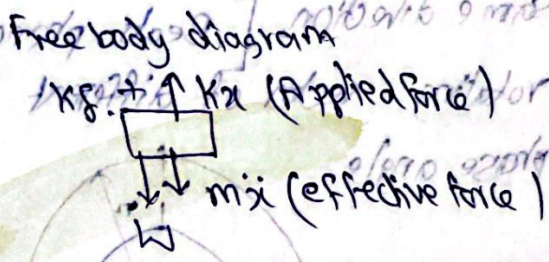 Free body diagram
Kδ + Kx (Applied force)
mẍ (effective force)
W